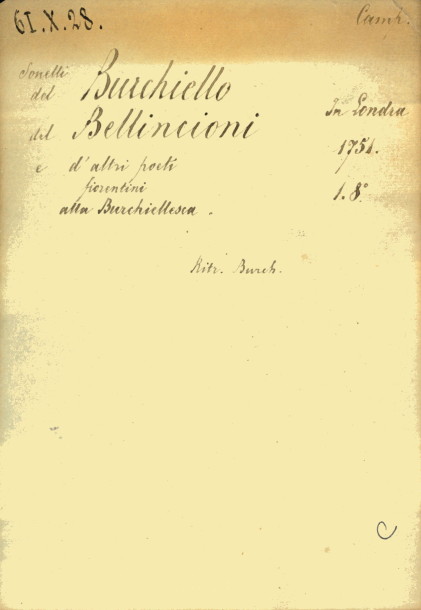 61.X.28.
Camk.
Sonetti
del Burchiello
del Bellincioni
e d'altri poeti
fiorentini
alla Burchiellesca.
In Londra
1751.
1. 8°
Ritr. Burch.
C